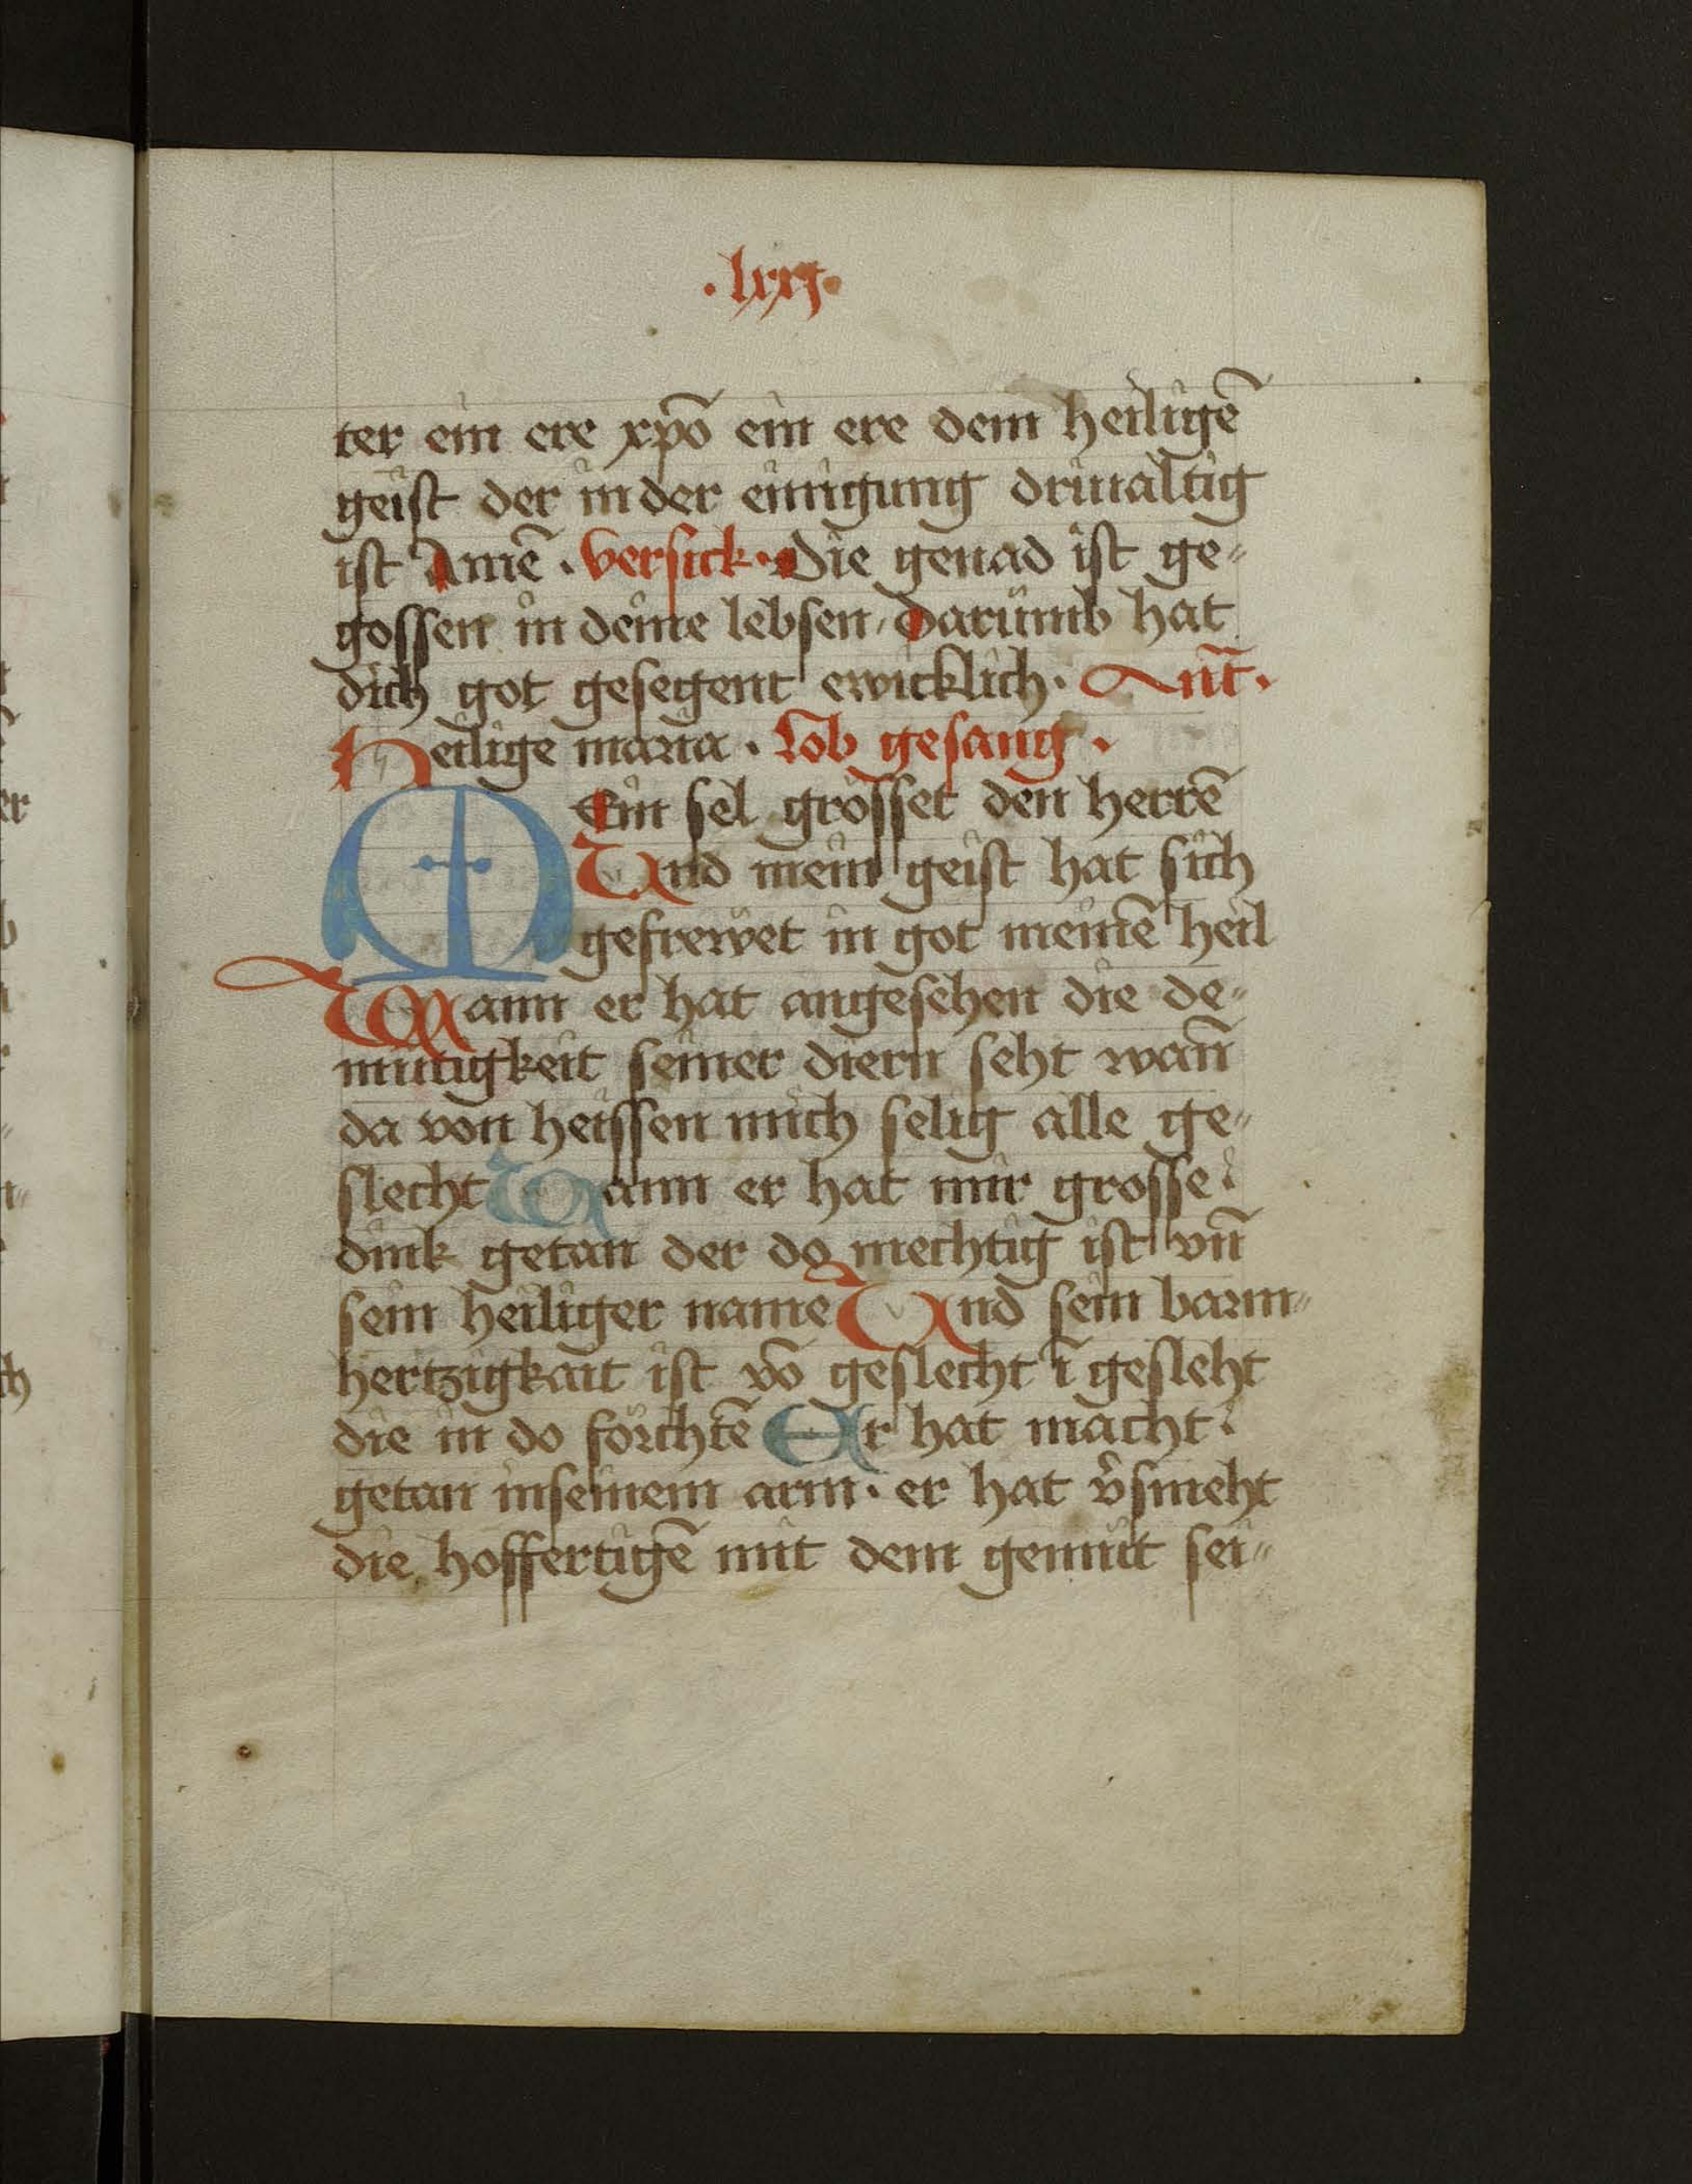 .lxxj.
ter ein ere xp̄o ein ere dem heiligē
geist der in der einigung driualtig
ist Amē . versick . Die genad ist ge״
gossen in deine lebsen / Darumb hat
dich got gesegent ewicklich . Ant̄ .
Heilige maria . Lob gesang .
MEin sel grösset den herrē
Vnd mein geist hat sich
gefrewet in got meinē heil
Wann er hat angesehen die de״
mutigkeit seiner diern seht wan̄
da von heissen mich selig alle ge״
slecht Wann er hat mir grosse
dink getan der do mechtig ist vn̄
sein heiliger name Vnd sein barm״
hertzigkait ist vō geslecht ī gesleht
die in do förchtē Er hat macht
getan in seinem arm . er hat v̄smeht
die hoffertigē mit dem gemüt sei״